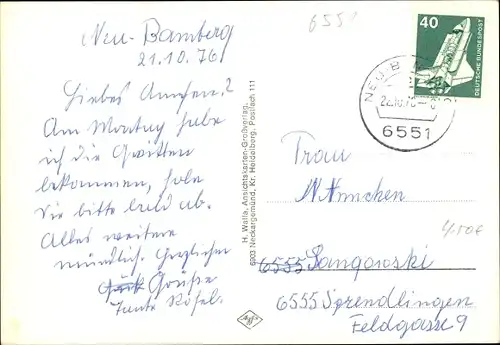 Neu-Bamberg
21.10.76
Liebes Annchen!
Am Montag habe
ich die Quitten
bekommen, hole
sie bitte bald ab.
Alles weitere
mündlich. Herzlichen
Grüße
Tante Rösel.
H. Walla, Ansichtskarten-Großverlag,
6903 Neckargemünd, Kr. Heidelberg, Postfach 111
6551
40
DEUTSCHE BUNDESPOST
NEU-B
22.10.76
6551
Frau
Annchen
4,50€
6555 Langowski
6555 Sprendlingen
Feldgasse 9